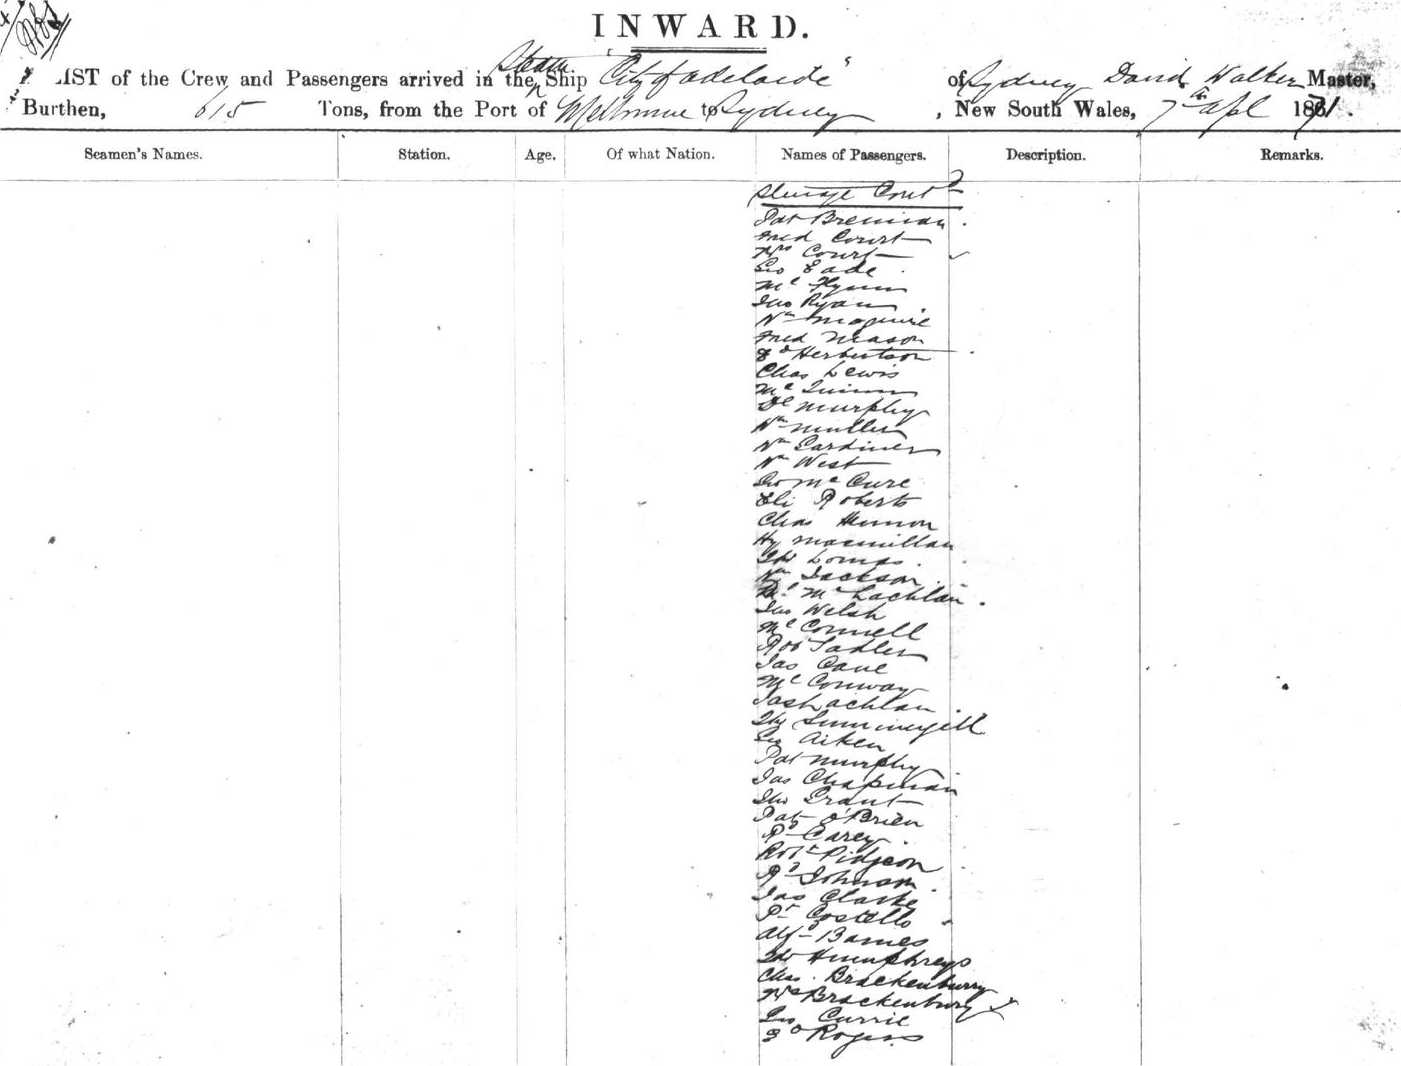 INWARD.
LIST of the Crew and Passengers arrived in the Steam Ship "City of Adelaide" of Sydney David Walker Master,
Burthen, 615 Tons, from the Port of Melbourne to Sydney, New South Wales, 7th Apl 1871.
Seamen's Names. Station. Age. Of what Nation. Names of Passengers. Description. Remarks.
Steerage Contd
Pat Brennan
Fred Court
Mrs Court
Geo Eade
Ml Flynn
Jno Ryan
Wm Maguire
Fred Mason
Ed Herbertson
Chas Lewis
Ml Quinn
Dl Murphy
Wm Muller
Wm Gardiner
Wm West
Geo McCure
Eli Roberts
Chas Hennon
Hy Macmillan
Tho Lomas
Wm Jackson
McLachlan
Jno Welsh
Ml Connell
Rob Sadler
Jas Cane
Ml Conway
Jas Lachlan
Tho Summergill
Geo Aitken
Pat Murphy
Jas Chapman
Tho Grant
Pat O'Brien
Rd Carey
Robt Pidgeon
Rd Johnson
Jas Clarke
Pt Costello
Alf Barnes
Tho Humphreys
Chas Brackenbury
Mrs Brackenbury
Geo Currie
Rogers